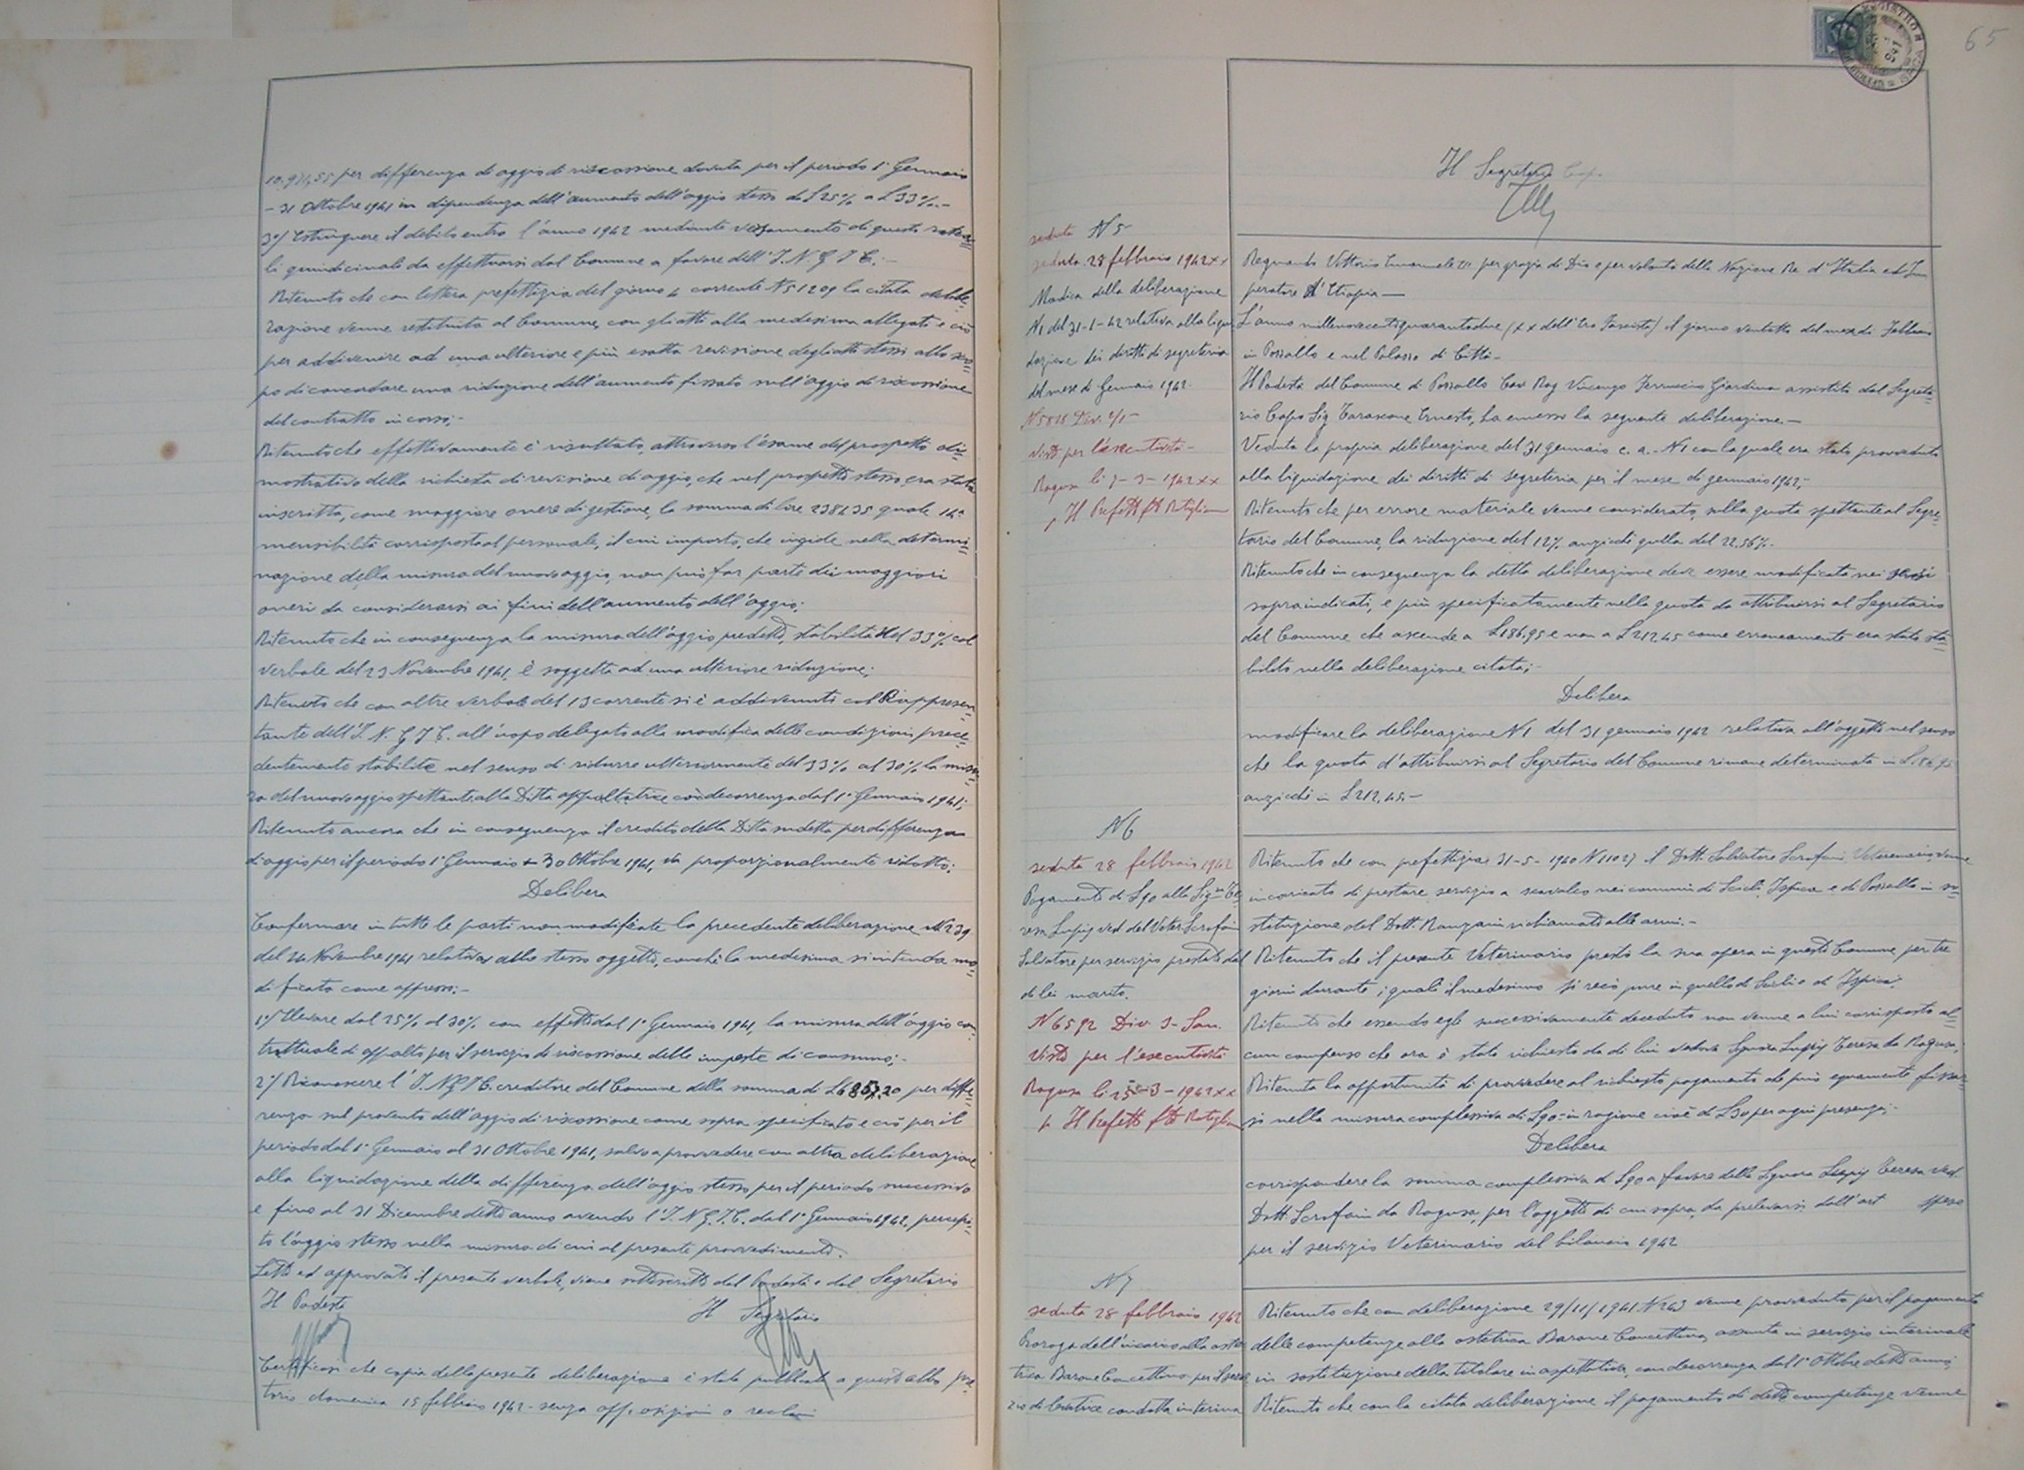 per differenza di aggio di riscossione dovuta per il periodo 1° Gennaio
- 31 Ottobre 1941 in dipendenza dell'aumento dell'aggio stesso dal 25% a L 33%.-
3°/ Estinguere il debito entro l'anno 1942 mediante versamento di queste
li quindicinali da effettuarsi dal Comune a favore dell'I.N.G.I.C.;-
Ritenuto che con lettera prefettizia del giorno corrente N 51209 la citata delibe=
razione venne restituita al Comune, con gli atti alla medesima allegati e ciò
per addivenire ad una ulteriore e più esatta revisione degli atti stessi allo sco=
po di concordare una riduzione dell'aumento fissato sull'aggio di riscossione
del contratto in corso;-
Ritenuto che effettivamente è risultato, attraverso l'esame del prospetto di=
mostrativo della richiesta di revisione di aggio, che nel prospetto stesso, era stata
inscritta, come maggiore onere di gestione, la somma di lire 238635 quale 14a
mensibilità corrisposta al personale, il cui importo, che incide nella determi=
nazione della misura del nuovo aggio, non può far parte dei maggiori
oneri da considerarsi ai fini dell'aumento dell'aggio;
Ritenuto che in conseguenza la misura dell'aggio predetto, stabilita del 33% col
verbale del 23 Novembre 1941, è soggetta ad una ulteriore riduzione;
Ritenuto che con altro verbale del 13 corrente si è addivenuti col Rappresen=
tante dell'I.N.G.I.C. all'uopo delegato alla modifica delle condizioni prece=
dentemente stabilite nel senso di ridurre ulteriormente del 33% al 30% la misu=
ra del nuovo aggio spettante alla Ditta appaltatrice con decorrenza dal 1° Gennaio 1941;
Ritenuto ancora che in conseguenza il credito della Ditta sudetta per differenza
di aggio per il periodo 1° Gennaio 30 Ottobre 1941, va proporzionalmente ridotto;
Delibera
Confermare in tutte le parti non modificate la precedente deliberazione N 239
del 24 Novembre 1941 relativa allo stesso oggetto, cosichè la medesima si intenda mo=
dificata come appresso:-
1°/ Elevare dal 25% al 30% con effetto dal 1° Gennaio 1941, la misura dell'aggio con=
trattuale di appalto per il servizio di riscossione delle imposte di consumo;-
2°/ Riconoscere l'I.N.G.I.C. creditore del Comune della somma di L 6857,20 per diffe=
renza sul provento dell'aggio di riscossione come sopra specificato e ciò per il
periodo dal 1° Gennaio al 31 Ottobre 1941, salvo a provvedere con altra deliberazione
alla liquidazione della differenza dell'aggio stesso per il periodo successivo
e fino al 31 Dicembre detto anno avendo l'I.N.G.I.C. dal 1° Gennaio 1942, percepi=
to l'aggio stesso nella misura di cui al presente provvedimento.
Letto ed approvato il presente verbale, viene sottoscritto dal Podestà e dal Segretario
Il Podestà Il Segretario
Certificasi che copia della presente deliberazione è stata pubblicata a quest'albo pre=
torio domenica 15 febbraio 1942 - senza opposizioni o reclami
65
Il Segretario Capo
N 5
seduta
seduta 28 febbraio 1942 XX
Modica della deliberazione
N 1 del 31-1-42 relativa alla liqui
dazione dei diritti di segreteria
del mese di Gennaio 1942
N 5818 Div. 2/1-
Visto per l'esecutività-
Ragusa li 7-3-1942 XX
Il Prefetto
Regnando Vittorio Emanuele III per grazia di Dio e per volontà della Nazione Re d'Italia ed Im
peratore d'Etiopia-
L'anno millenovecentoquarantadue (XX dell'Era Fascista) il giorno ventotto del mese di Febbraio
in Pozzallo e nel Palazzo di Città-
Il Podestà del Comune di Pozzallo Cav Rag Vincenzo Ferruccio Giardina assistito dal Segreta=
rio Capo Sig Tarascone Ernesto, ha emesso la seguente deliberazione.-
Veduta la propria deliberazione del 31 gennaio c. a. N 1 con la quale era stato provveduto
alla liquidazione dei diritti di segreteria per il mese di gennaio 1942;-
Ritenuto che per errore materiale venne considerato, sulla quota spettante al Segre=
tario del Comune, la riduzione del 12% anzicchè quella del 22,56%.
Ritenuto che in conseguenza la detta deliberazione deve essere modificata nei sensi
sopraindicati, e più specificatamente nella quota da attribuirsi al Segretario
del Comune che ascende a L186,95 e non a L212,45 come erroneamente era stato sta=
bilito nella deliberazione citata;-
Delibera
modificare la deliberazione N 1 del 31 gennaio 1942 relativa all'oggetto nel senso
che la quota d'attribuirsi al Segretario del Comune rimane determinata in L186,95
anzicchè in L212,45.-
N 6
seduta 28 febbraio 1942
Pagamento di L 90 alla Sig.ra Te=
resa Lupis ved. del Veter. Scrofani
Salvatore per servizio prestato dal
di lei marito.
N 6592 Div 3- San.
Visto per l'esecutività
Ragusa li 25-3-1942 XX
Il Prefetto
Ritenuto che con prefettizia 31-5-1940 N 11027 il Dott. Salvatore Scrofani, Veterinario, venne
incaricato di prestare servizio a scavalco nei comuni di Scicli, Ispica e di Pozzallo in so=
stituzione del Dott. richiamato alle armi.-
Ritenuto che il presente Veterinario prestò la sua opera in questo Comune, per tre
giorni durante i quali il medesimo si recò pure in quello di Scicli e di Ispica.
Ritenuto che essendo egli successivamente deceduto non venne a lui corrisposto al=
cun compenso che ora è stato richiesto da di lui vedova Signora Lupis Teresa da Ragusa;
Ritenuta la opportunità di provvedere al richiesto pagamento che può equamente fissar=
si nella misura complessiva di L 90= in ragione cioè di L 30 per ogni presenza;-
Delibera
corrispondere la somma complessiva di L 90 a favore della Signora Lupis Teresa ved.
Dott. Scrofani da Ragusa, per l'oggetto di cui sopra, da prelevarsi dall'art spese
per il servizio Veterinario del bilancio 1942
N 7
seduta 28 febbraio 1942
Proroga dell'incarico alla oste
trica Barone Concettina per il servi
zio di levatrice condotta interina
Ritenuto che con deliberazione 29/11/1941 N 243 venne provveduto per il pagamento
delle competenze alla ostetrica Barone Concettina, assunta in servizio interinale
in sostituzione della titolare in aspettativa, con decorrenza dal 1° Ottobre detto anno;
Ritenuto che con la citata deliberazione il pagamento di dette competenze venne